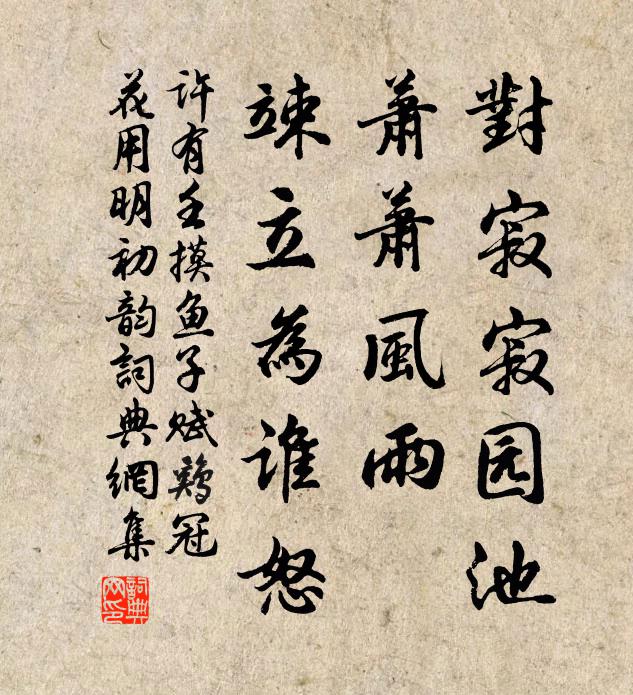 對寂寂园池
蕭蕭風雨
竦立為誰怒
許有壬摸鱼子赋鷄冠
花用明初韵詞典網集
詞典网印